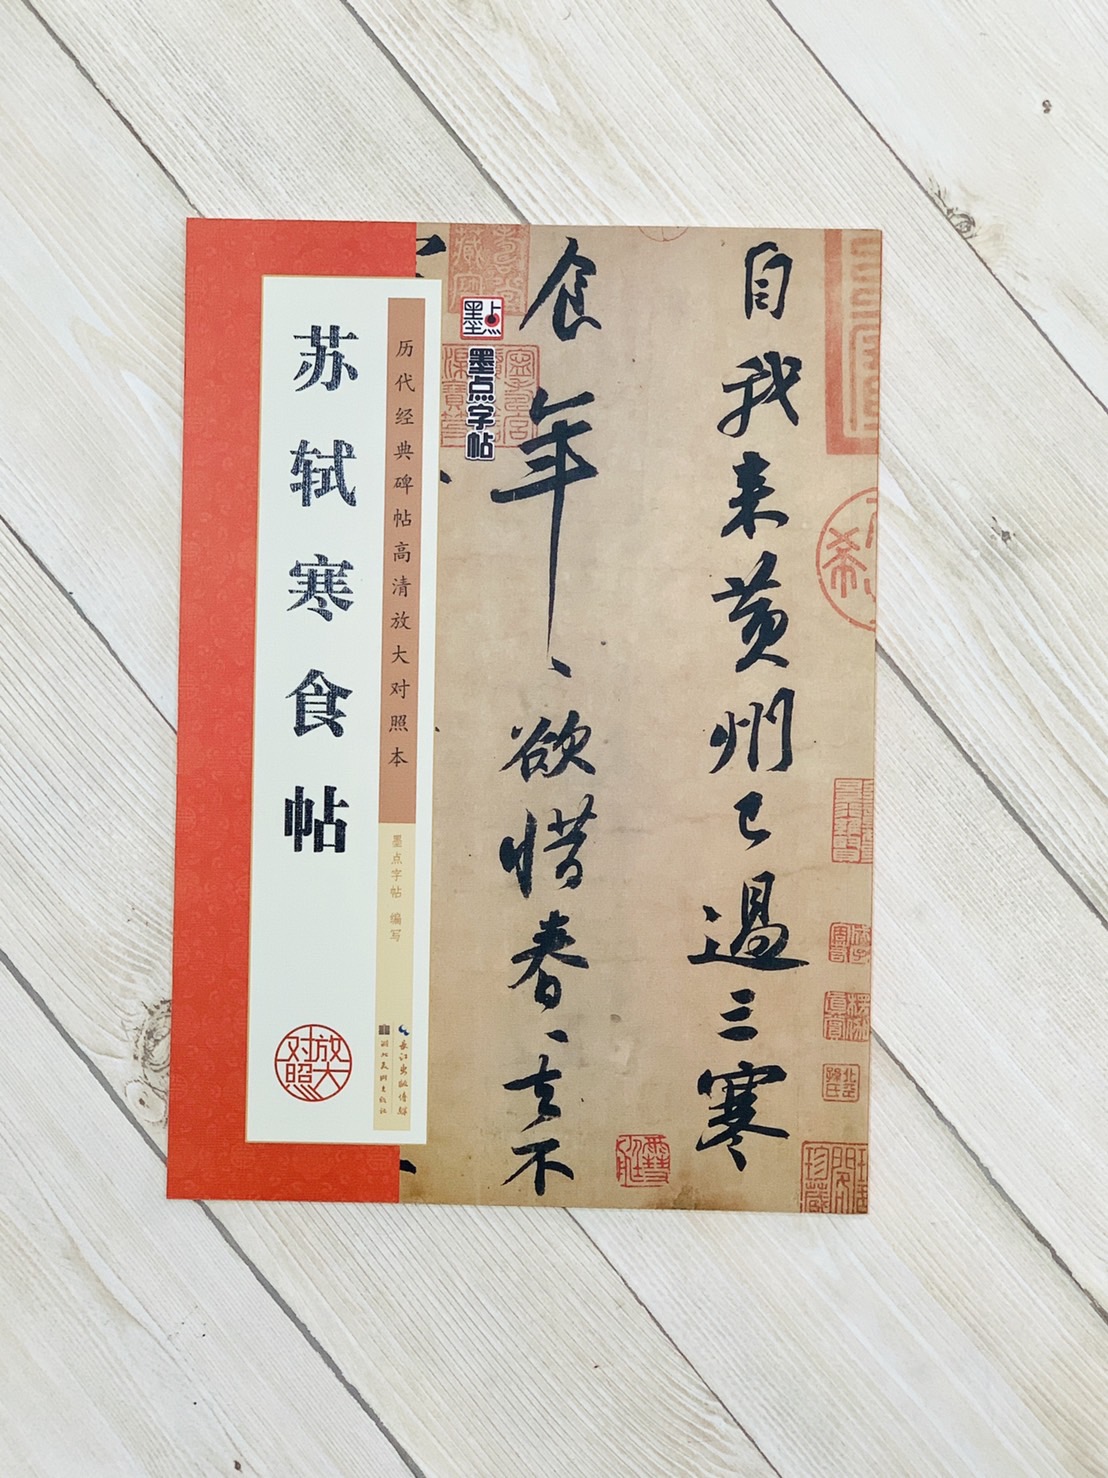 苏轼寒食帖
历代经典碑帖高清放大对照本
墨点字帖 编写
长江出版传媒
湖北美术出版社
放大
对照
墨点
墨点字帖
自我来黄州已過三寒
食年〻欲惜春〻去不